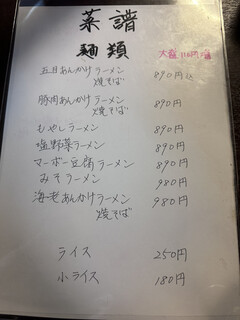 菜譜
麺類 大盛110円増
五目あんかけラーメン 890円
焼そば
豚肉あんかけラーメン 890円
焼そば
もやしラーメン 890円
塩野菜ラーメン 890円
マーボー豆腐ラーメン 890円
みそラーメン 980円
海老あんかけラーメン 980円
焼そば
ライス 250円
小ライス 180円